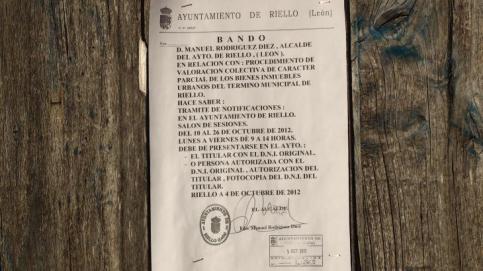 AYUNTAMIENTO DE RIELLO (León)
BANDO
D. MANUEL RODRIGUEZ DIEZ, ALCALDE
DEL AYTO. DE RIELLO, ( LEON ).
EN RELACION CON : PROCEDIMIENTO DE
VALORACION COLECTIVA DE CARACTER
PARCIAL DE LOS BIENES INMUEBLES
URBANOS DEL TERMINO MUNICIPAL DE
RIELLO.
HACE SABER :
TRAMITE DE NOTIFICACIONES :
EN EL AYUNTAMIENTO DE RIELLO.
SALON DE SESIONES.
DEL 10 AL 26 DE OCTUBRE DE 2012.
LUNES A VIERNES DE 9 A 14 HORAS.
DEBE DE PRESENTARSE EN EL AYTO. :
- EL TITULAR CON EL D.N.I. ORIGINAL.
- O PERSONA AUTORIZADA CON EL
D.N.I. ORIGINAL , AUTORIZACION DEL
TITULAR , FOTOCOPIA DEL D.N.I. DEL
TITULAR.
RIELLO A 4 DE OCTUBRE DE 2012
EL ALCALDE
Manuel Rodriguez Diez
AYUNTAMIENTO DE
RIELLO
AYUNTAMIENTO DE
OCT 2012